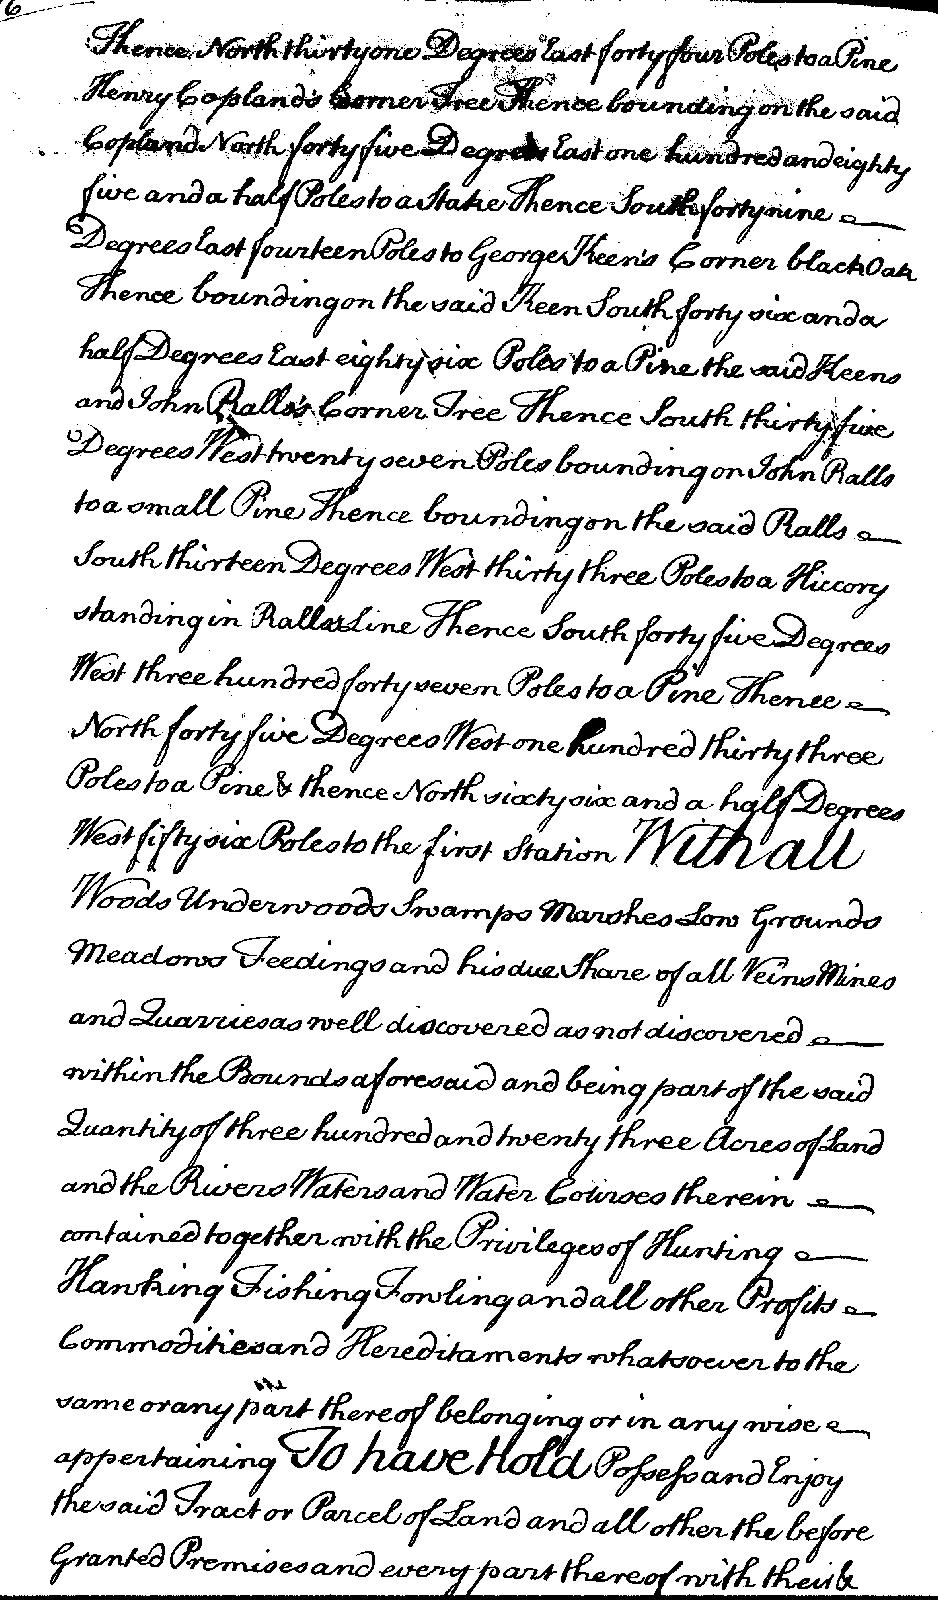 6
Thence North thirty one Degrees East forty four Poles to a Pine
Henry Copland's Corner Tree Thence bounding on the said
Copland North forty five Degrees East one hundred and eighty
five and a half Poles to a Stake Thence South forty nine
Degrees East fourteen Poles to George Keen's Corner black Oak
Thence bounding on the said Keen South forty six and a
half Degrees East eighty six Poles to a Pine the said Keens
and John Ralls's Corner Tree Thence South thirty five
Degrees West twenty seven Poles bounding on John Ralls
to a small Pine Thence bounding on the said Ralls
South thirteen Degrees West thirty three Poles to a Hiccory
standing in Ralls's Line Thence South forty five Degrees
West three hundred forty seven Poles to a Pine Thence
North forty five Degrees West one hundred thirty three
Poles to a Pine & thence North sixty six and a half Degrees
West fifty six Poles to the first Station With all
Woods Underwoods Swamps Marshes Low Grounds
Meadows Feedings and his due Share of all Veins Mines
and Quarries as well discovered as not discovered
within the Bounds aforesaid and being part of the said
Quantity of three hundred and twenty three Acres of Land
and the Rivers Waters and Water Courses therein
contained together with the Privileges of Hunting
Hawking Fishing Fowling and all other Profits
Commodities and Hereditaments whatsoever to the
same or any part thereof belonging or in any wise
appertaining To have Hold Possess and Enjoy
the said Tract or Parcel of Land and all other the before
Granted Premises and every part thereof with their &